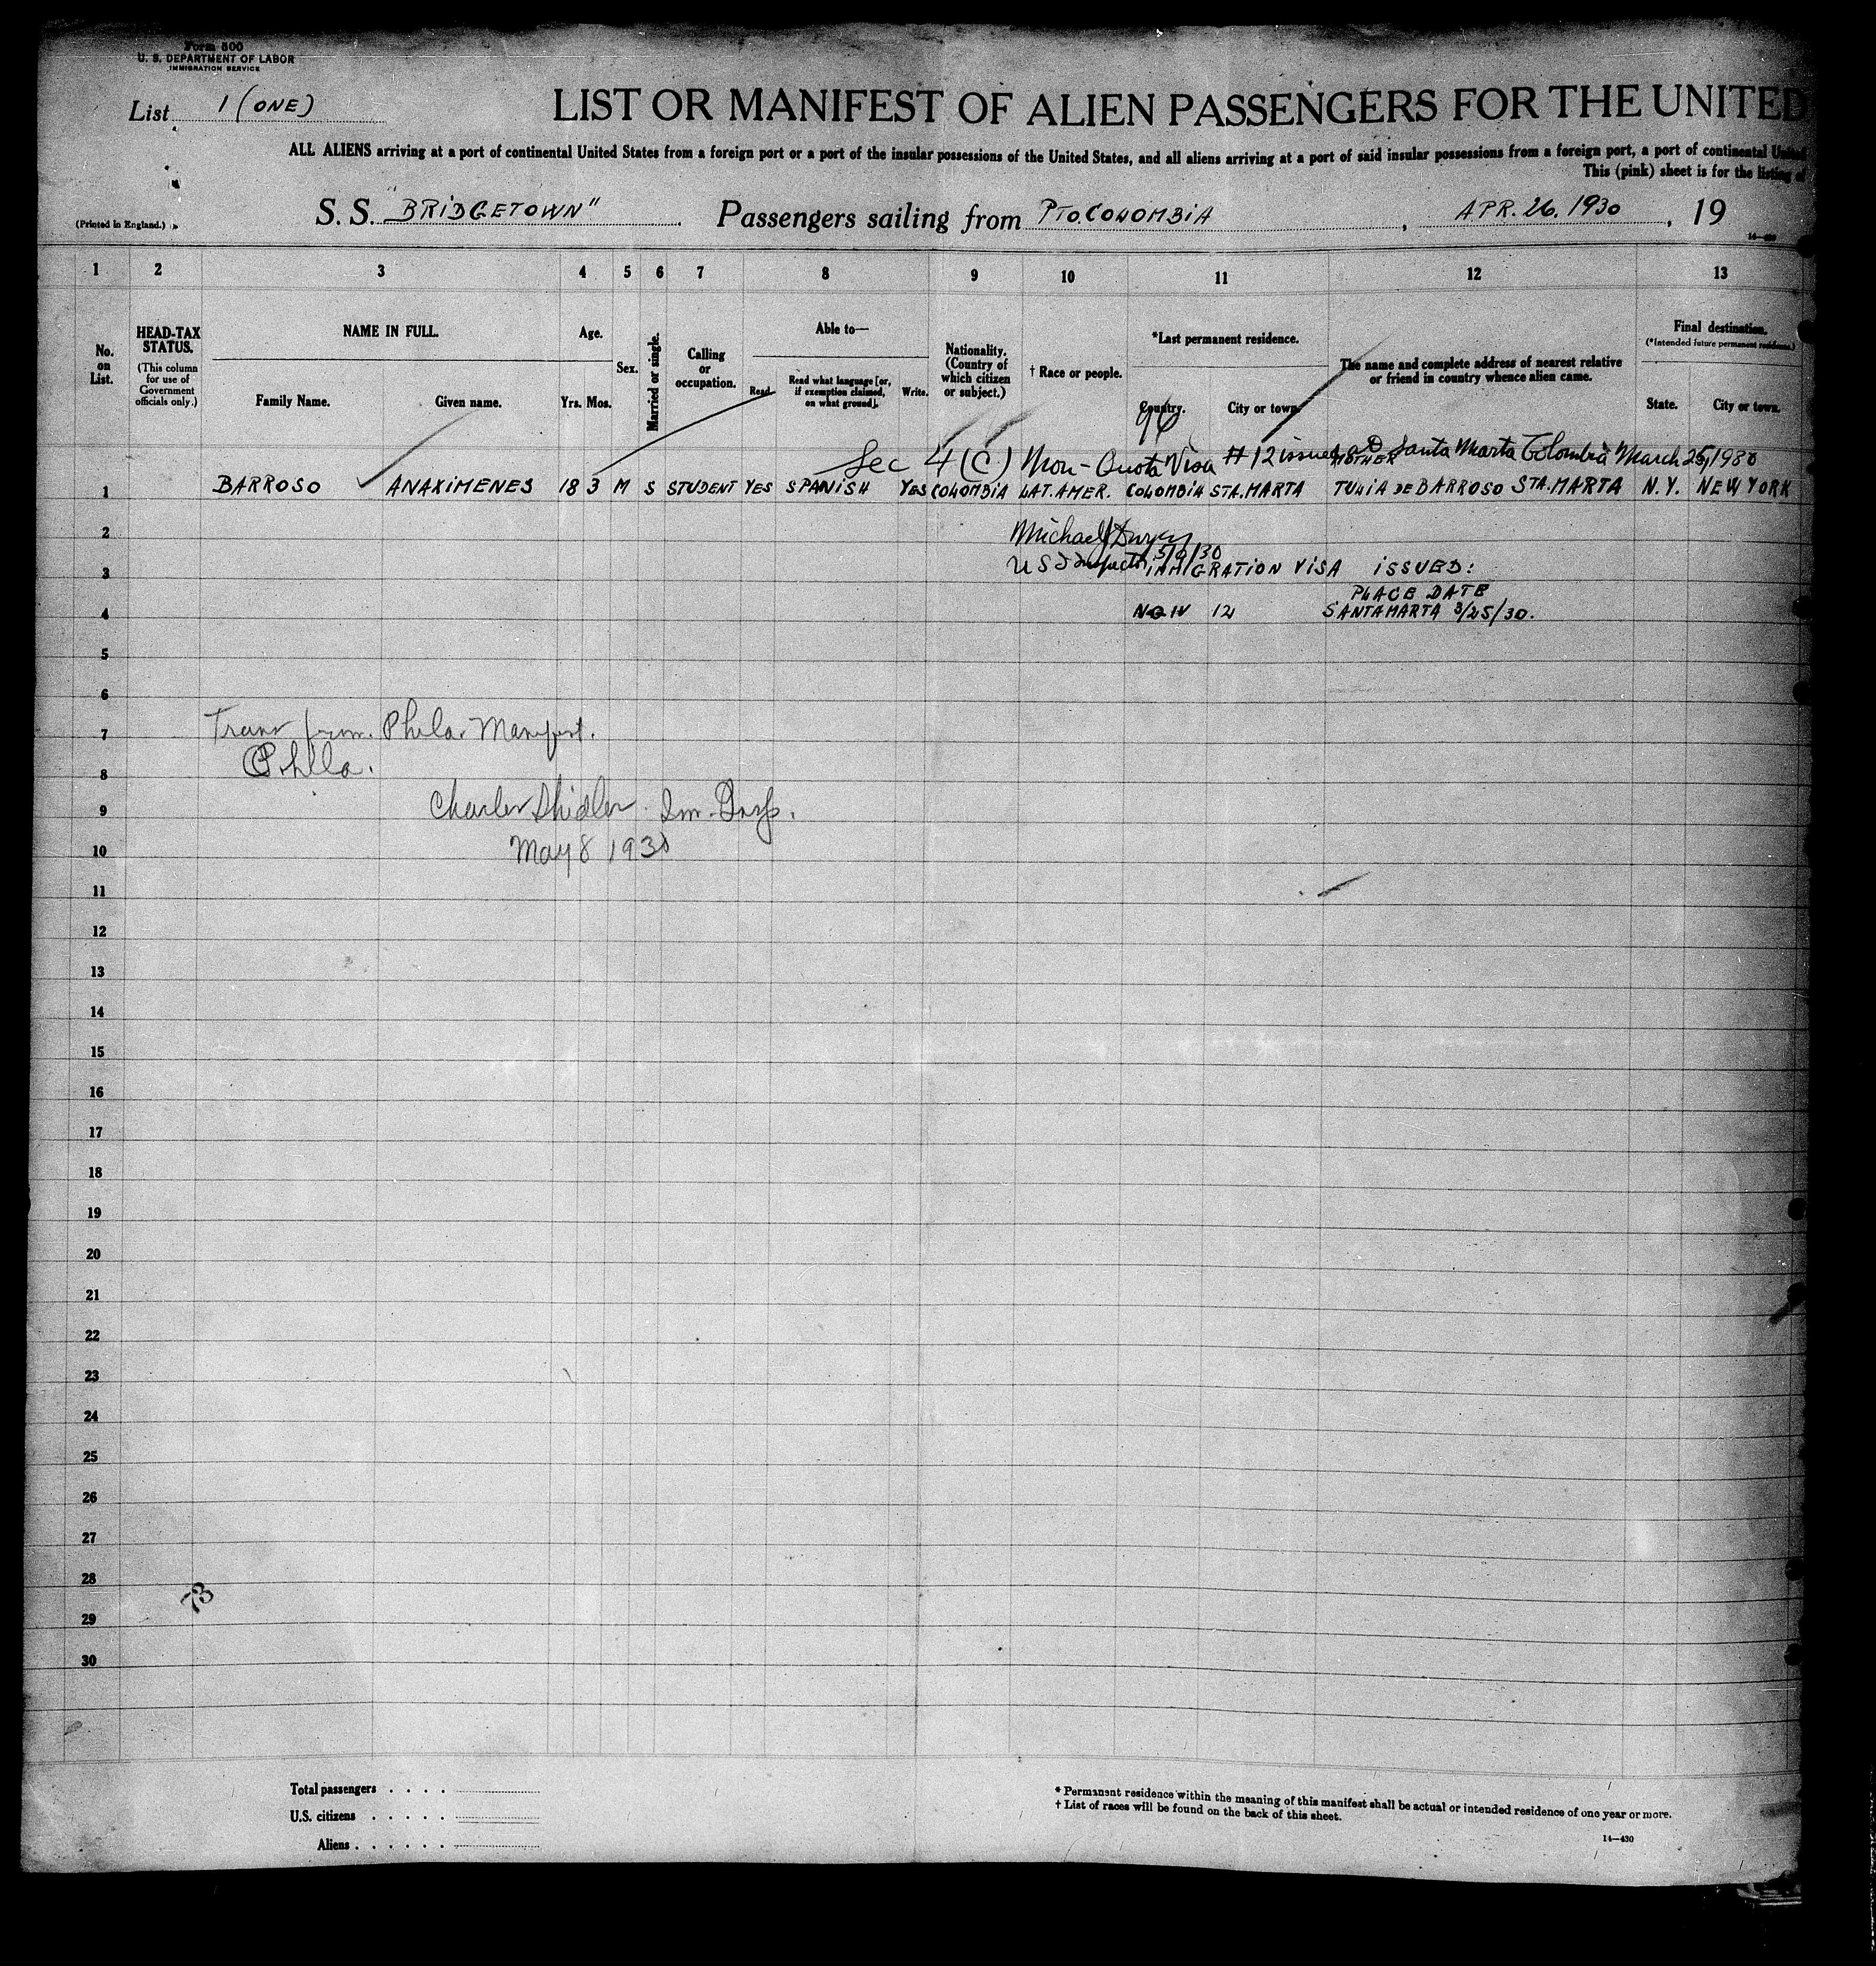 Form 500
U. S. DEPARTMENT OF LABOR
IMMIGRATION SERVICE
List 1 (ONE)
LIST OR MANIFEST OF ALIEN PASSENGERS FOR THE UNITED
ALL ALIENS arriving at a port of continental United States from a foreign port or a port of the insular possessions of the United States, and all aliens arriving at a port of said insular possessions from a foreign port, a port of continental United
This (pink) sheet is for the listing of
(Printed in England.)
S. S. "BRIDGETOWN" Passengers sailing from PTO. COLOMBIA, APR. 26. 1930, 19
1 2 3 4 5 6 7 8 9 10 11 12 13
No. on List.
HEAD-TAX STATUS.
(This column for use of Government officials only.)
NAME IN FULL.
Family Name. Given name.
Age.
Yrs. Mos.
Sex.
Married or single.
Calling or occupation.
Able to—
Read. Read what language [or, if exemption claimed, on what ground]. Write.
Nationality. (Country of which citizen or subject.)
† Race or people.
*Last permanent residence.
Country. City or town.
The name and complete address of nearest relative or friend in country whence alien came.
Final destination.
(*Intended future permanent residence.)
State. City or town.
Sec 4 (C) Non-Quota Visa # 12 issued at Santa Marta Colombia March 25, 1930
MOTHER
1 BARROSO ANAXIMENES 18 3 M S STUDENT YES SPANISH YES COLOMBIA LAT. AMER. COLOMBIA STA. MARTA TULIA DE BARROSO STA. MARTA N.Y. NEW YORK
2 Michael J Dwyer
3 US Inspector IMMIGRATION VISA ISSUED:
PLACE DATE
4 12 SANTA MARTA 3/25/30.
5
6
7 Trans from. Phila. Manifest.
8 Phila.
9 Charles Shidler Im. Insp.
10 May 8 1930
11
12
13
14
15
16
17
18
19
20
21
22
23
24
25
26
27
28
73
29
30
Total passengers . . . .
U.S. citizens . . . . .
Aliens . . . . . .
* Permanent residence within the meaning of this manifest shall be actual or intended residence of one year or more.
† List of races will be found on the back of this sheet.
14—430